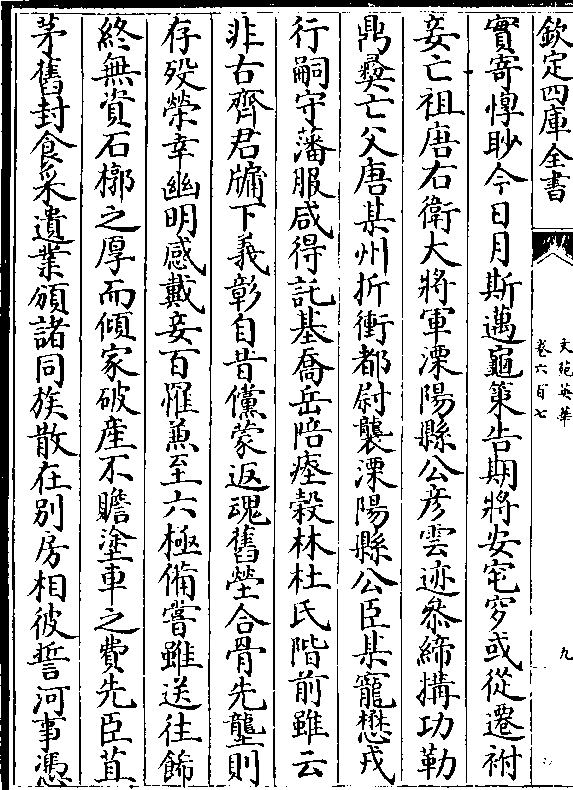 欽定四庫全書
文苑英華
卷六百七
九
實寄惸眇今日月斯邁龜策告期將安宅穸或從遷祔
妾亡祖唐右衛大將軍溧陽縣公彦雲迹叅締搆功勒
鼎彞亡父唐某州折衝都尉襲溧陽縣公臣某寵懋戎
行嗣守藩服咸得託基喬岳陪瘞榖林杜氏階前雖云
非右齊君牖下義彰自昔儻蒙返魂舊塋合骨先壟則
存歿榮幸幽明感戴妾百罹兼至六極備嘗雖送往飾
終無資石槨之厚而傾家破産不贍塗車之費先臣苴
茅舊封食采遺業頒諸同族散在别房相彼誓河事憑